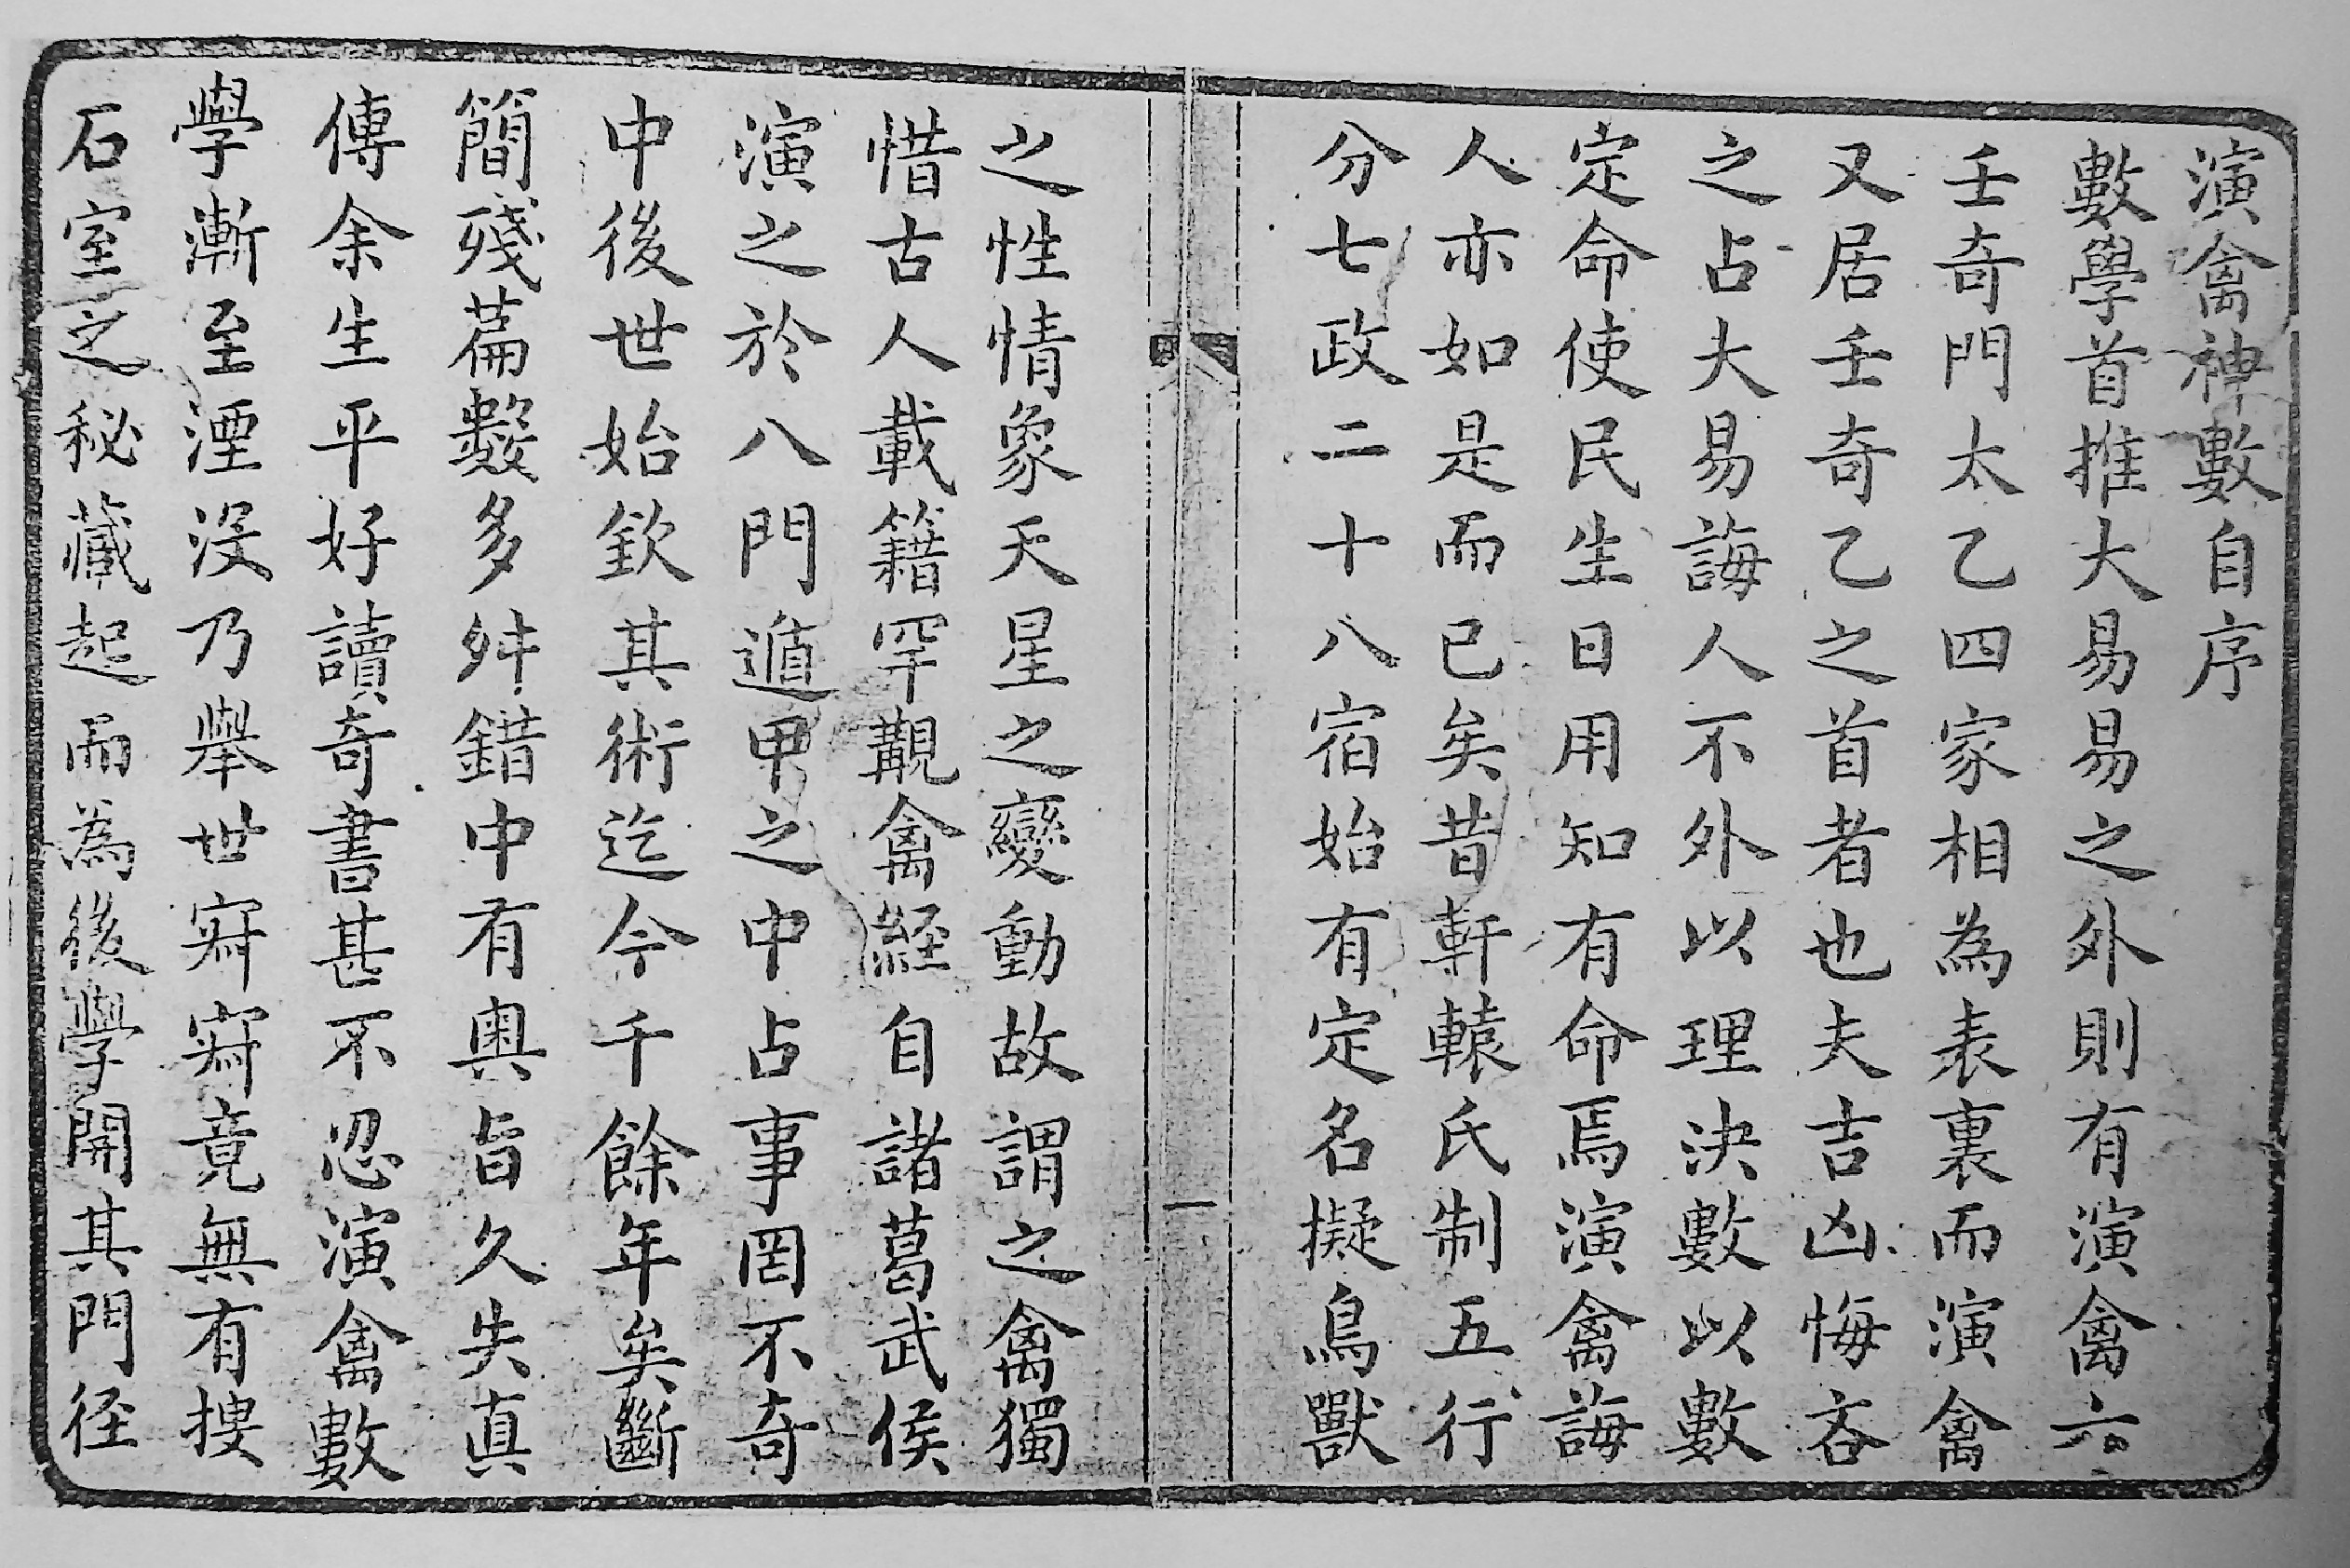 演禽神數自序
數學首推大易易之外則有演禽六
壬奇門太乙四家相為表裏而演禽
又居壬奇乙之首者也夫吉凶悔吝
之占大易誨人不外以理決數以數
定命使民生日用知有命焉演禽誨
人亦如是而已矣昔軒轅氏制五行
分七政二十八宿始有定名擬鳥獸
一
之性情象天星之變動故謂之禽獨
惜古人載籍罕覯禽經自諸葛武侯
演之於八門遁甲之中占事罔不奇
中後世始欽其術迄今千餘年矣斷
簡殘篇數多舛錯中有奧旨久失真
傳余生平好讀奇書甚不忍演禽數
學漸至湮沒乃舉世𡬶𡬶竟無有摟
石室之秘藏起而為後學開其門径